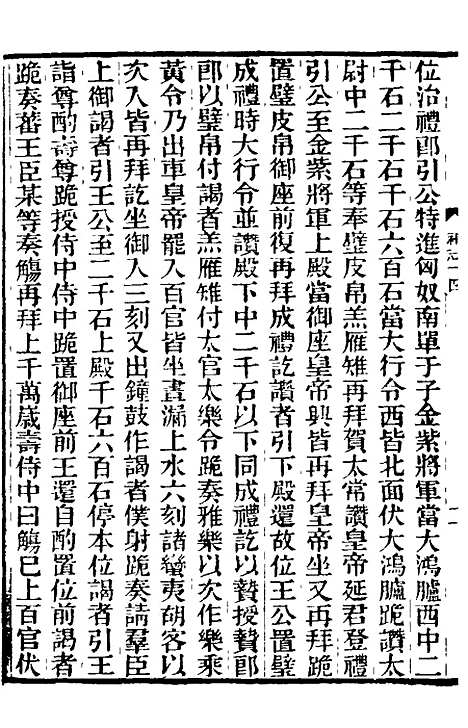 位治禮郎引公特進匈奴南單于子金紫將軍當大鴻臚西中二
千石二千石千石六百石當大行令西皆北面伏大鴻臚跪讚太
尉中二千石等奉璧皮帛羔雁雉再拜賀太常讚皇帝延君登禮
引公至金紫將軍上殿當御座皇帝興皆再拜皇帝坐又再拜跪
置璧皮帛御座前復再拜成禮訖讚者引下殿還故位王公置璧
成禮時大行令並讚殿下中二千石以下同成禮訖以贄授贄郎
郎以璧帛付謁者羔雁雉付太官太樂令跪奏雅樂以次作樂乘
黃令乃出車皇帝罷入百官皆坐晝漏上水六刻諸蠻夷胡客以
次入皆再拜訖坐御入三刻又出鐘鼓作謁者僕射跪奏請羣臣
上御謁者引王公至二千石上殿千石六百石停本位謁者引王
詣尊酌壽尊跪授侍中侍中跪置御座前王還自酌置位前謁者
跪奏蕃王臣某等奉觴再拜上千萬歲壽侍中曰觴巳上百官伏